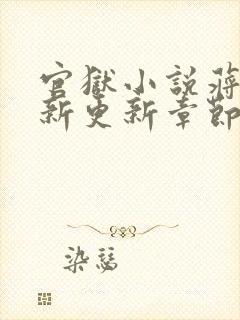 官獄小說蔣
新更新章節
染瑟